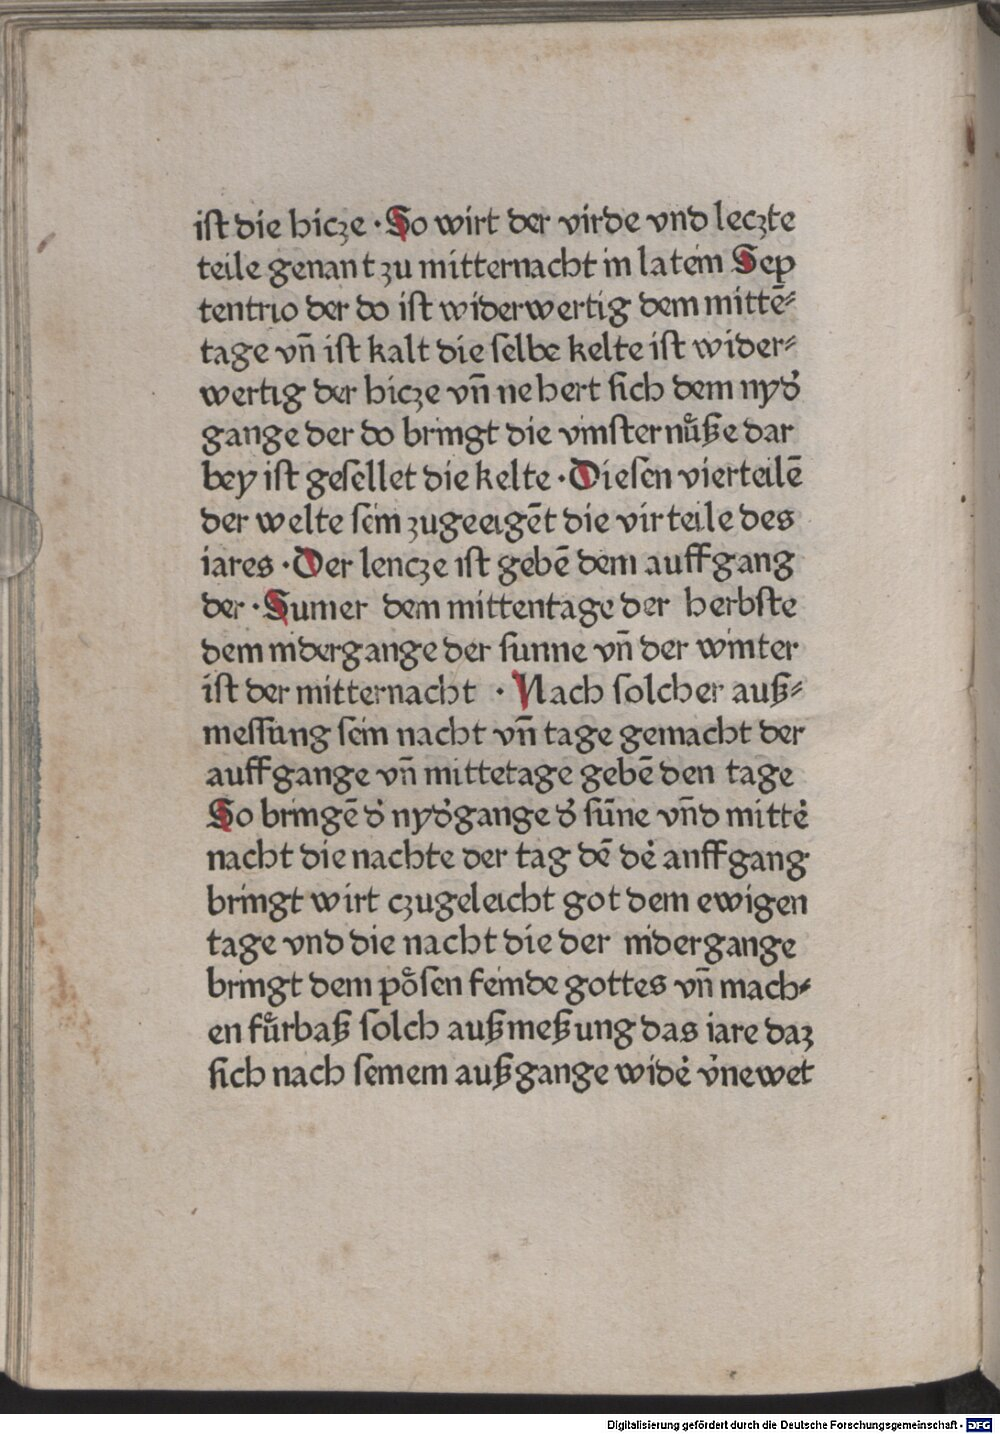 ist die hicze · So wirt der virde vnd leczte
teile genant zu mitternacht in latein Sep
tentrio der do ist widerwertig dem mittē⸗
tage vn̄ ist kalt die selbe kelte ist wider⸗
wertig der hicze vn̄ nehert sich dem nyd᷑
gange der do bringt die vinsternůße dar
bey ist gesellet die kelte · Diesen vierteilē
der welte sein zugeeigēt die virteile des
iares · Der lencze ist gebē dem auffgang
der · Sumer dem mittentage der herbste
dem nidergange der sunne vn̄ der winter
ist der mitternacht · Nach solcher auß⸗
messung sein nacht vn̄ tage gemacht der
auffgange vn̄ mittetage gebē den tage
So bringē d᷑ nyd᷑gange d᷑ sūne vn̄d mitte᷑
nacht die nachte der tag dē de᷑ anffgang
bringt wirt czugeleicht got dem ewigen
tage vnd die nacht die der nidergange
bringt dem poͤsen feinde gottes vn̄ mach⸗
en fuͤrbaß solch außmeßung das iare daz
sich nach seinem außgange wide᷑ v᷑newet
Digitalisierung gefördert durch die Deutsche Forschungsgemeinschaft - DFG